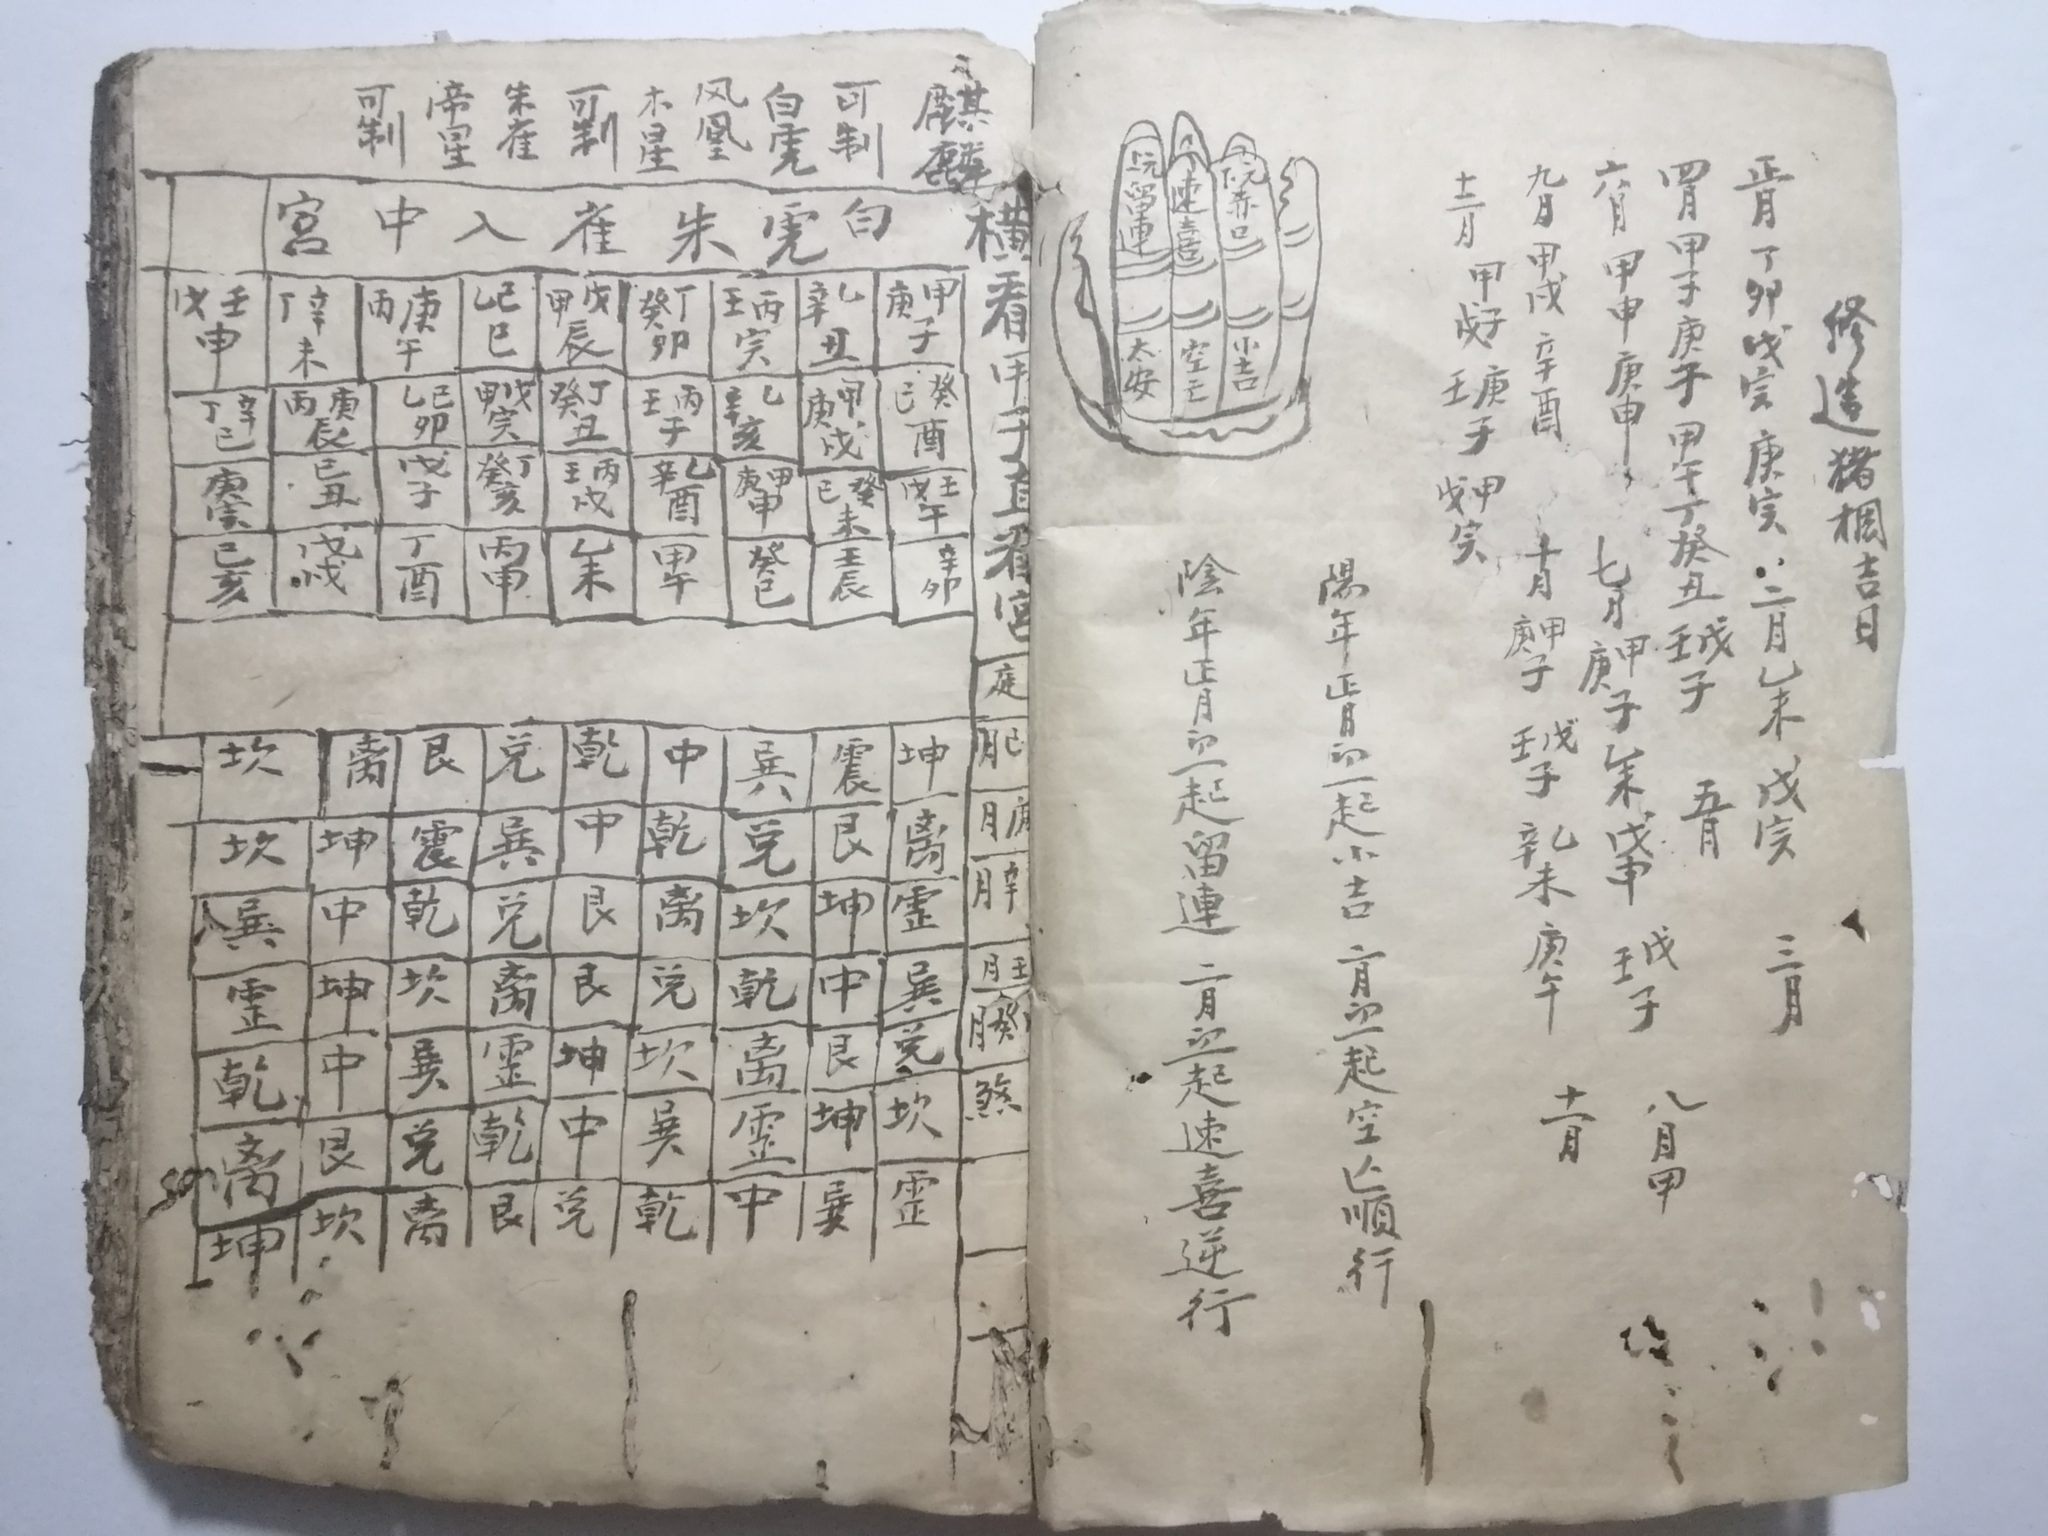 修造猪楒吉日
正月丁卯戊寅庚寅二月乙未戊寅 三月
四月甲子庚子甲午丁癸丑壬戊子 五月
六月甲申庚申 七月庚甲子乙未戊申壬戊子 八月甲
九月甲戌辛酉 十月庚甲子壬戊子辛乙未庚午 十一月
十二月甲戊子壬庚子戊甲寅
留連 速喜 赤口
大安 空亡 小吉
陽年正月初一起小吉二月初一起空亡順行
陰年正月初一起留連二月初一起速喜逆行
麒麟 可制 白虎 风凰 木星 可制 朱雀 帝星 可制
横看甲子直看宮
白虎朱雀入中宮
庚甲子 辛乙丑 壬丙寅 癸丁卯 甲戊辰 乙己巳 丙庚午 丁辛未 戊壬申
己癸酉 庚甲戌 辛乙亥 壬丙子 癸丁丑 甲戊寅 乙己卯 丙庚辰 丁辛巳
戊壬午 己癸未 庚甲申 辛乙酉 壬丙戌 癸丁亥 戊子 己丑 庚寅
辛卯 壬辰 癸巳 甲午 乙未 丙申 丁酉 戊戌 己亥
庭
月己 坤 震 巽 中 乾 兌 艮 离 坎
月庚 离 艮 兌 乾 中 巽 震 坤 坎
月辛 震 坤 坎 离 艮 兌 乾 中 巽
月壬 巽 中 乾 兌 艮 离 坎 坤 震
月癸 兌 艮 离 坎 坤 震 巽 中 乾
煞 坎 坤 震 巽 中 乾 兌 艮 离
震 巽 中 乾 兌 艮 离 坎 坤